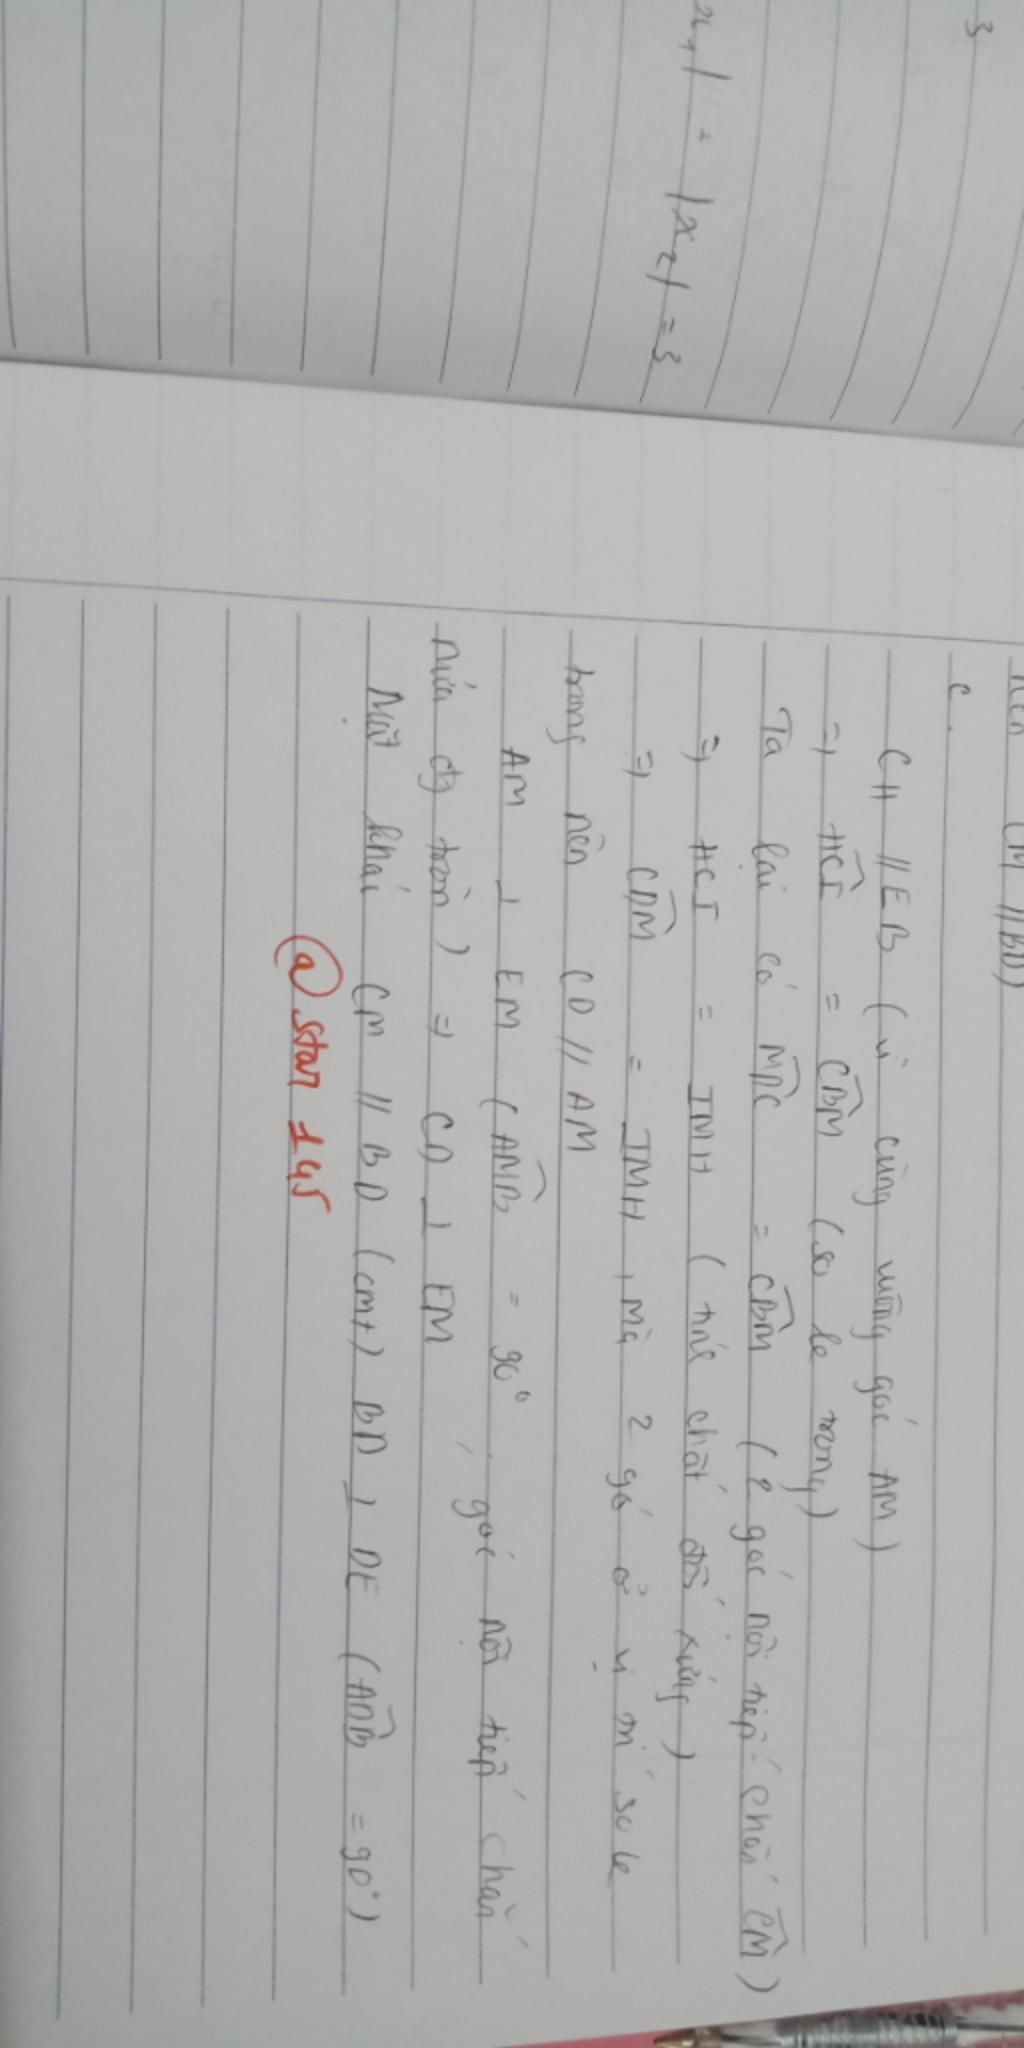 3
x₁| - |x₂| = 3
CM // BD)
c.
CH // EB (vì cùng vuông góc AM)
=> HCI = CBM (so le trong)
Ta lại có MDC = CBM (2 góc nội tiếp chắn CM)
=> HCI = IMH (tính chất đối xứng)
=> CDM = IMH, mà 2 góc ở vị trí so le
trong nên CD // AM
AM ⊥ EM (AMB = 90° góc nội tiếp chắn
nửa đg tròn) => CD ⊥ EM
Mặt khác CM // BD (cmt) BD ⊥ DE (ADB = 90°)
@ star 145